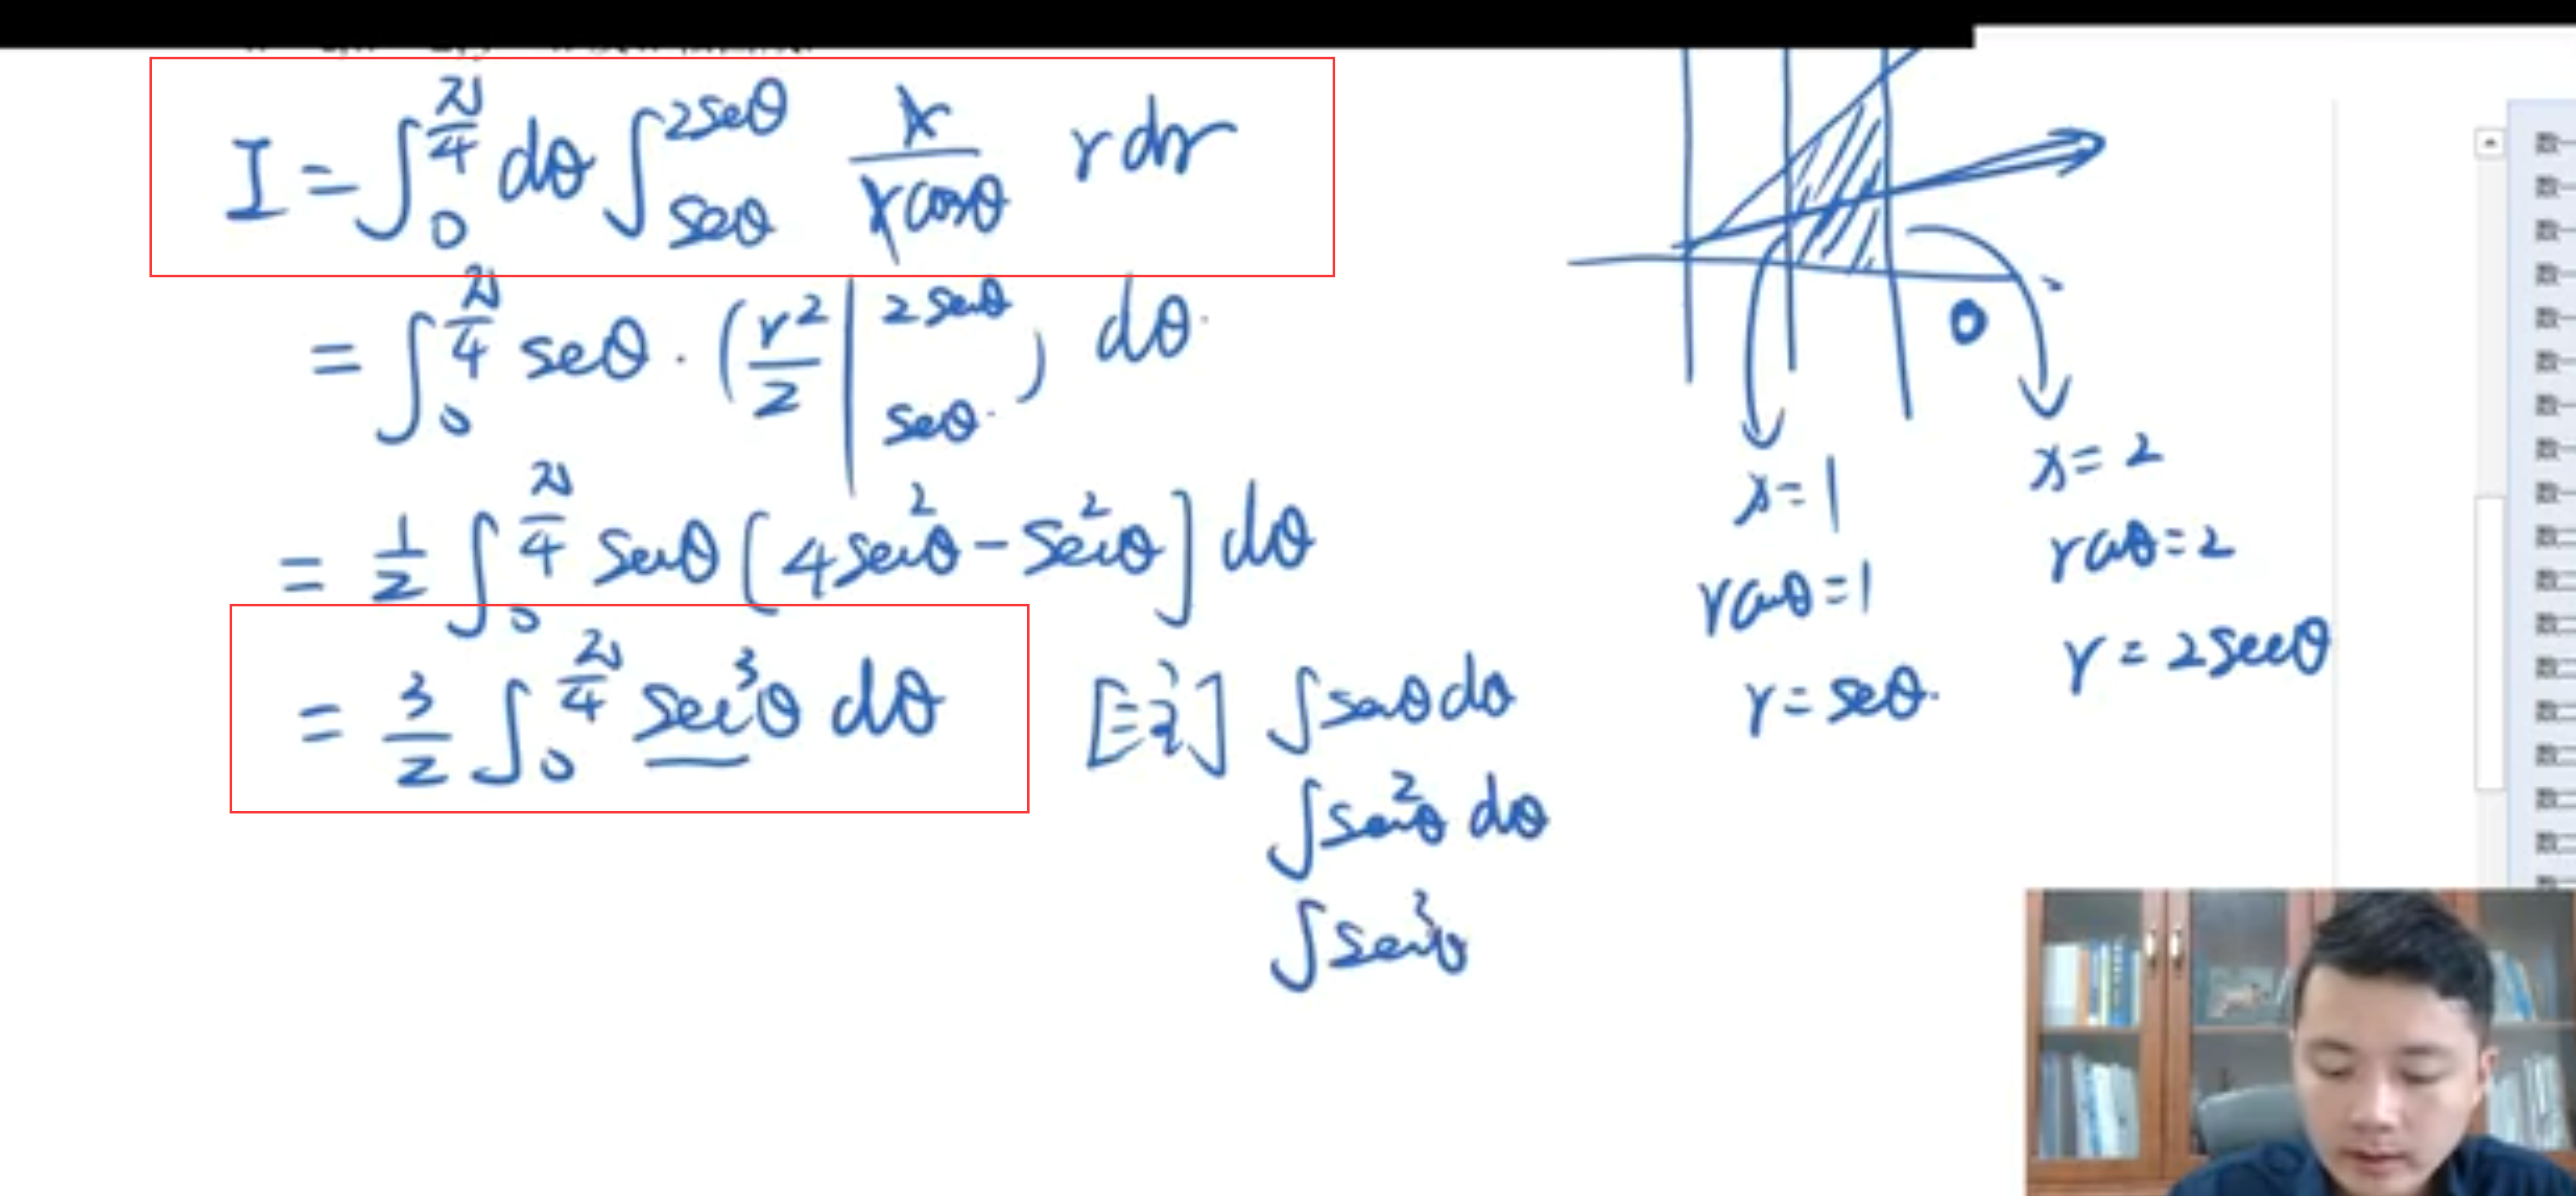 I = ∫₀^{π/4} dθ ∫_{secθ}^{2secθ} r/(r cosθ) r dr
= ∫₀^{π/4} secθ · (r²/2 |_{secθ}^{2secθ}) dθ
= 1/2 ∫₀^{π/4} secθ [4sec²θ - sec²θ] dθ
= 3/2 ∫₀^{π/4} sec³θ dθ
[注] ∫secθ dθ
∫sec²θ dθ
∫sec³θ
D
x=1
rcosθ=1
r=secθ.
x=2
rcosθ=2
r=2secθ